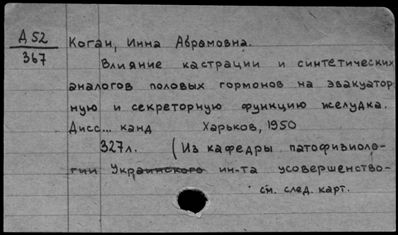 Д 52
367
Коган, Инна Абрамовна.
Влияние кастрации и синтетических
аналогов половых гормонов на эвакуатор
ную и секреторную функцию желудка.
Дисс... канд Харьков, 1950
327л. (Из кафедры патофизиоло-
гии Украинского ин-та усовершенство-
см. след. карт.